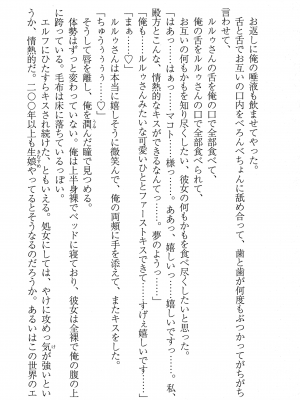 お返しに俺の唾液も飲ませてやった。
舌と舌でお互いの口内をべろんべちょんに舐め合って、歯と歯が何度もぶつかってがちがち
言わせて、
ルルゥさんの舌を俺の口で全部食べて、
俺の舌をルルゥさんの口で全部食べられて、
お互いの何もかもを知り尽くしたい、彼女の何もかもを食べ尽くしたいと思った。
「はあっ……はぁっ……マコト……様っ……。ああっ、嬉しいっ……嬉しいですっ……。私、
殿方とこんな、情熱的なキスができるなんてっ……。夢のようっ……」
「俺も……ルルゥさんみたいな可愛いひととファーストキスできて……すげぇ嬉しいです……」
「ちゅうううううっ♡」
ルルゥさんは本当に嬉しそうに微笑んで、俺の両頰に手を添えて、またキスをした。
そうして唇を離し、俺を潤んだ瞳で見つめる。
体勢はずっと変わっていない。俺は上半身裸でベッドに寝ており、彼女は全裸で俺の腹の上
に跨っている。毛布は床に落ちているっぽい。
エルフにひたすらキスされ続けた、ともいえる。処女にしては、やけに攻めっ気が強いとい
うか、情熱的だ。二〇〇年以上も生娘やってるとそうなるのだろうか。あるいはこの世界のエ